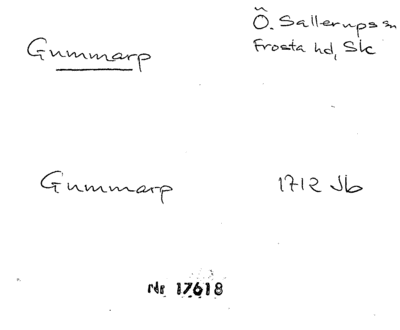 Gummarp
Ö. Sallerups sn
Frosta hd, Sk
Gummarp
1712 Jb
Nr 17618